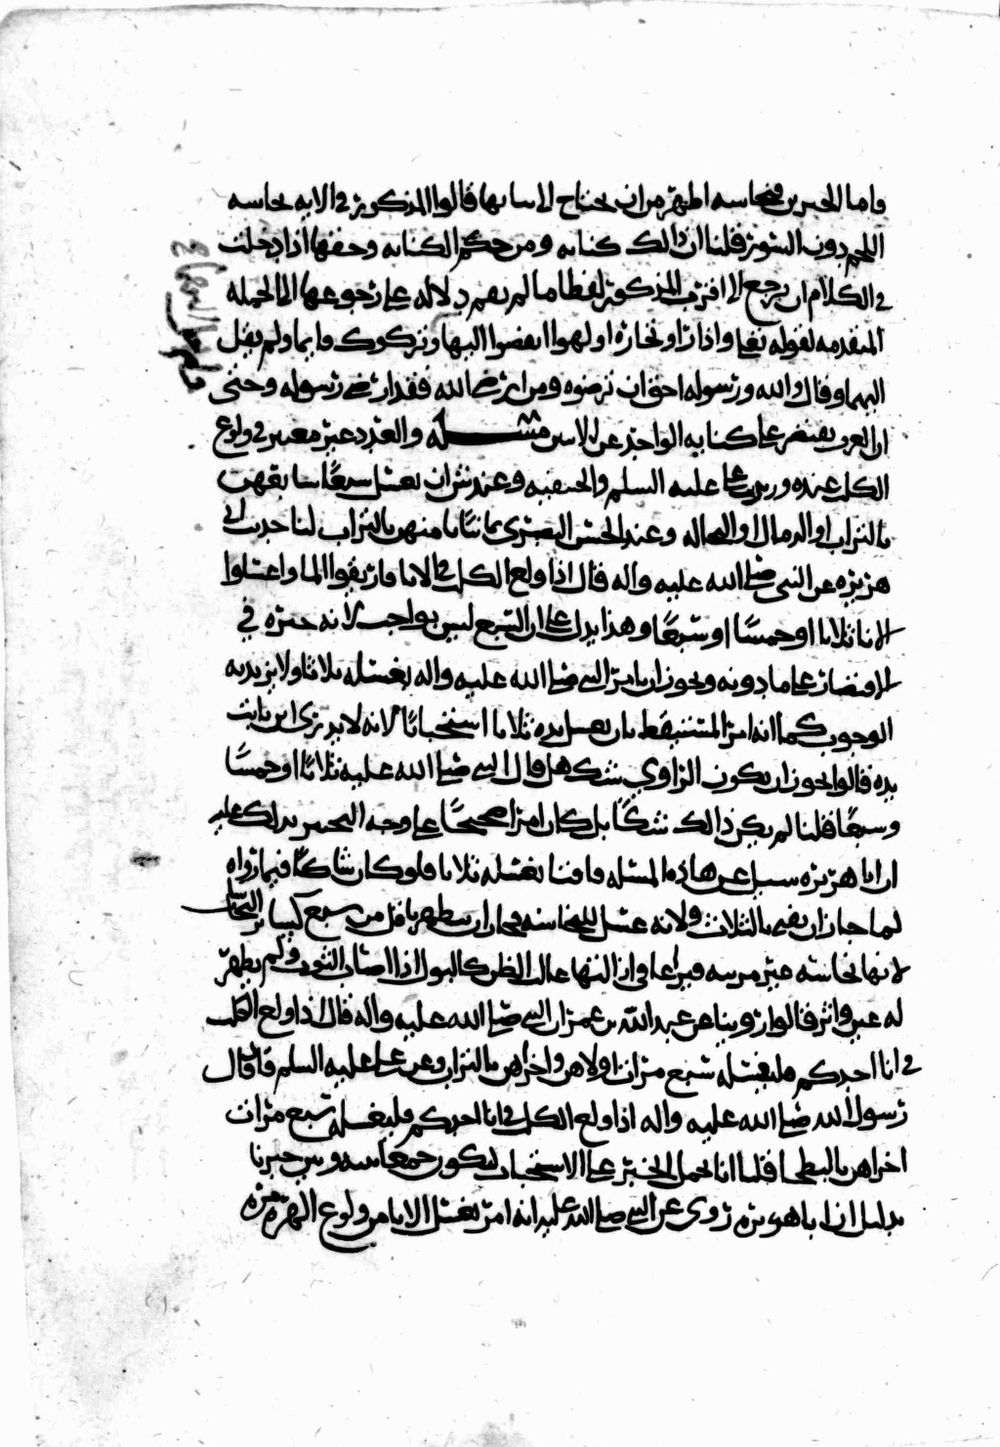 واما الخنزير فنجاسته اظهر من ان يحتاج الى بيانها قالوا المذكور في الايه نجاسه
اللحم دون الشعر قلنا ان ذالك كنايه ومن حكم الكنايه وحقها اذا دخلت
في الكلام ان يرجع الى اقرب المذكور لفظا ما لم يقم دلاله على رجوعها الى الجمله
المتقدمه لقوله تعلى واذا راو تجاره او لهوا انفضوا اليها وتركوك قايما ولم يقل
اليهما وقال والله ورسوله احق ان ترضوه ومن ارضى الله فقد ارضى رسوله وحتى
ان العرب يقتصر على كنايه الواحد عن الاثنين مسئله والعدد غير معتبر في ولوغ
الكلب عنده وربيب على عليه السلم والحنفيه وعند ش ان يغسل سبعا
بالتراب او الرمال او النخاله وعند الحسن البصري ثمانيا ثامنهن بالتراب لنا حديث ابي
هريره عن النبي صلى الله عليه واله قال اذا ولغ الكلب في الانا فاريقوا الما واغسلوا
الانا ثلاثا او خمسا او سبعا وهذا يدل على ان التسبيع ليس بواجب لانه خيره في
الاقتصار على ما دونه ولا يجوز ان يامر النبي صلى الله عليه واله بغسله ثلاثا ولا يريد به
الوجوب كما انه امر المستيقظ بان يغسل يده ثلاثا استحبابا لانه لا يدري اين باتت
يده قالوا يجوز ان يكون الراوي شك هل قال النبي صلى الله عليه ثلاثا او خمسا
وسبعا قلنا لم يكن ذالك شكا بل كان امرا صحيحا على وجه التخيير يدلك عليه
ان ابا هريره سيل عن هاذه المسئله فافتا بغسله ثلاثا فلو كان شاكا فيما رواه
لما جاز ان يفتي بالثلاث ولانه غسل لنجاسه فجاز ان يطهر باقل من سبع كساير النجاسات
لانها نجاسه غير مريه فيراعى في ازالتها غالب الظن كالبول اذا اصاب الثوب ولم يظهر
له عين واثر قالوا روينا عن عبد الله بن عمر ان النبي صلى الله عليه واله قال اذا ولغ الكلب
في انا احدكم فليغسله سبع مرات اولاهن واخراهن بالتراب وعن علي عليه السلم قال قال
رسول الله صلى الله عليه واله اذا ولغ الكلب في انا احدكم فليغسله سبع مرات
اخراهن بالبطحا قلنا انا نحمل الخبر على الاستحباب ليكون جمعا بينه وبين خبرنا
بدليل ان ابا هريره روى عن النبي صلى الله عليه انه امر بغسل الانا من ولوغ الهره مره